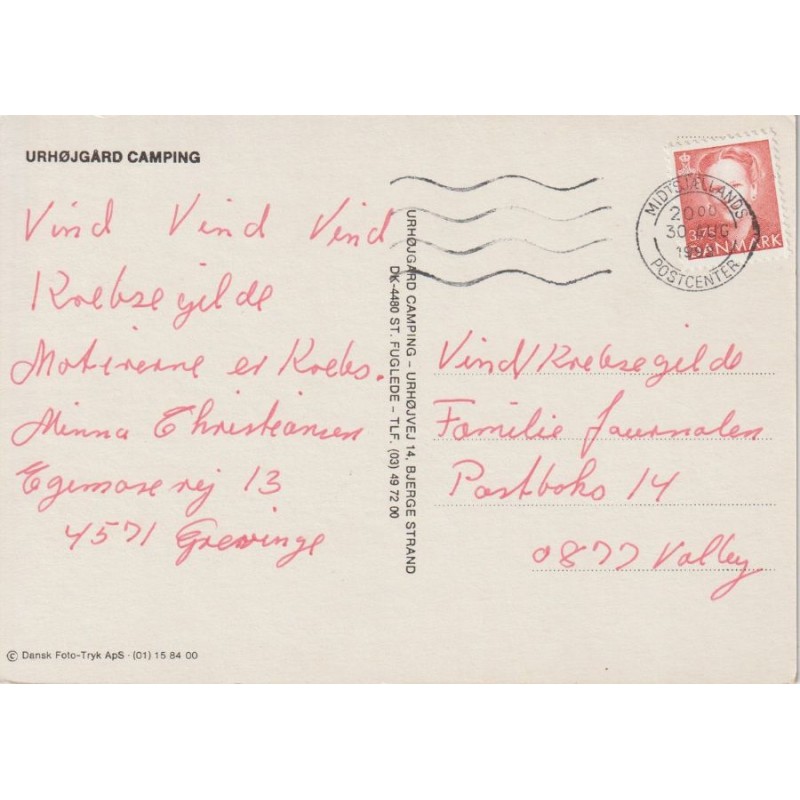 URHØJGÅRD CAMPING
Vind Vind Vind
Krebsegilde
Motiverne er Krebs.
Minna Christiansen
Egemosevej 13
4571 Grevinge
© Dansk Foto-Tryk ApS · (01) 15 84 00
URHØJGÅRD CAMPING – URHØJVEJ 14, BJERGE STRAND
DK-4480 ST. FUGLEDE – TLF. (03) 49 72 00
MIDTSJÆLLANDS
2000
30 AUG
POSTCENTER
3.75
DANMARK
Vind Krebsegilde
Familie Journalen
Postboks 14
0877 Valby